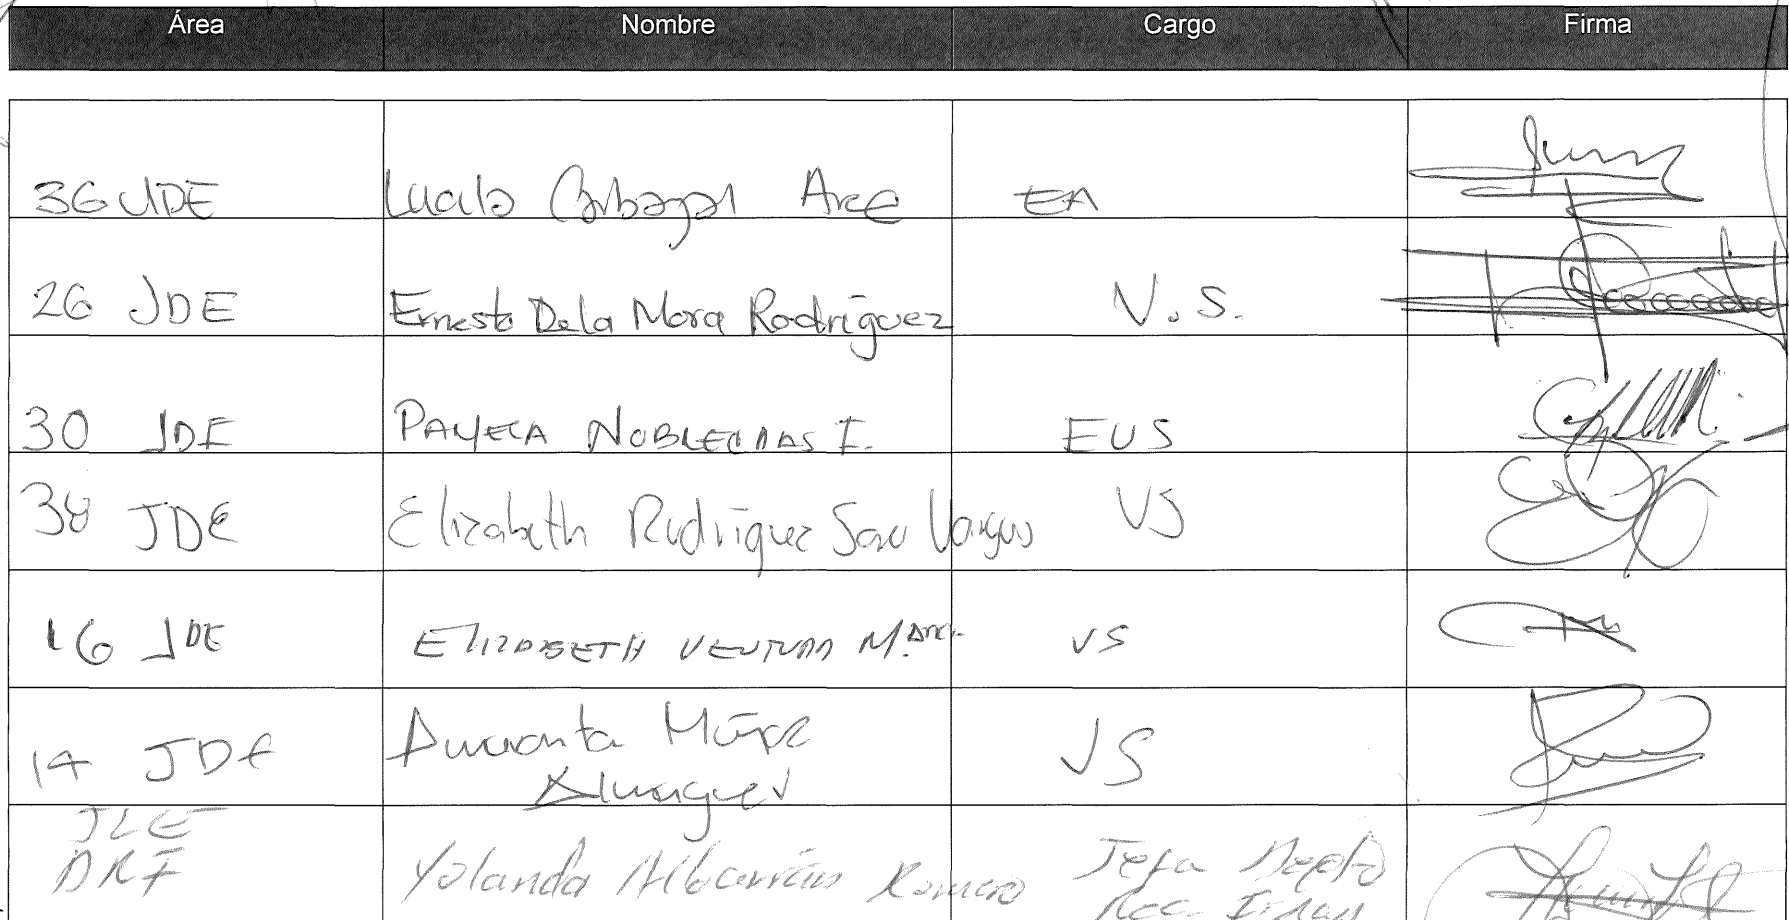 Área Nombre Cargo Firma
36 JDE Lucila Carbajal Arce EA
26 JDE Ernesto De la Mora Rodríguez V.S.
30 JDE I. EUS
38 JDE Elizabeth Rodríguez Vargas VS
16 JDE ELIZABETH VENTURA VS
14 JDE VS
Almaguer
JLE
DRF Yolanda Albarrán Romero Jefa Depto
Rec.